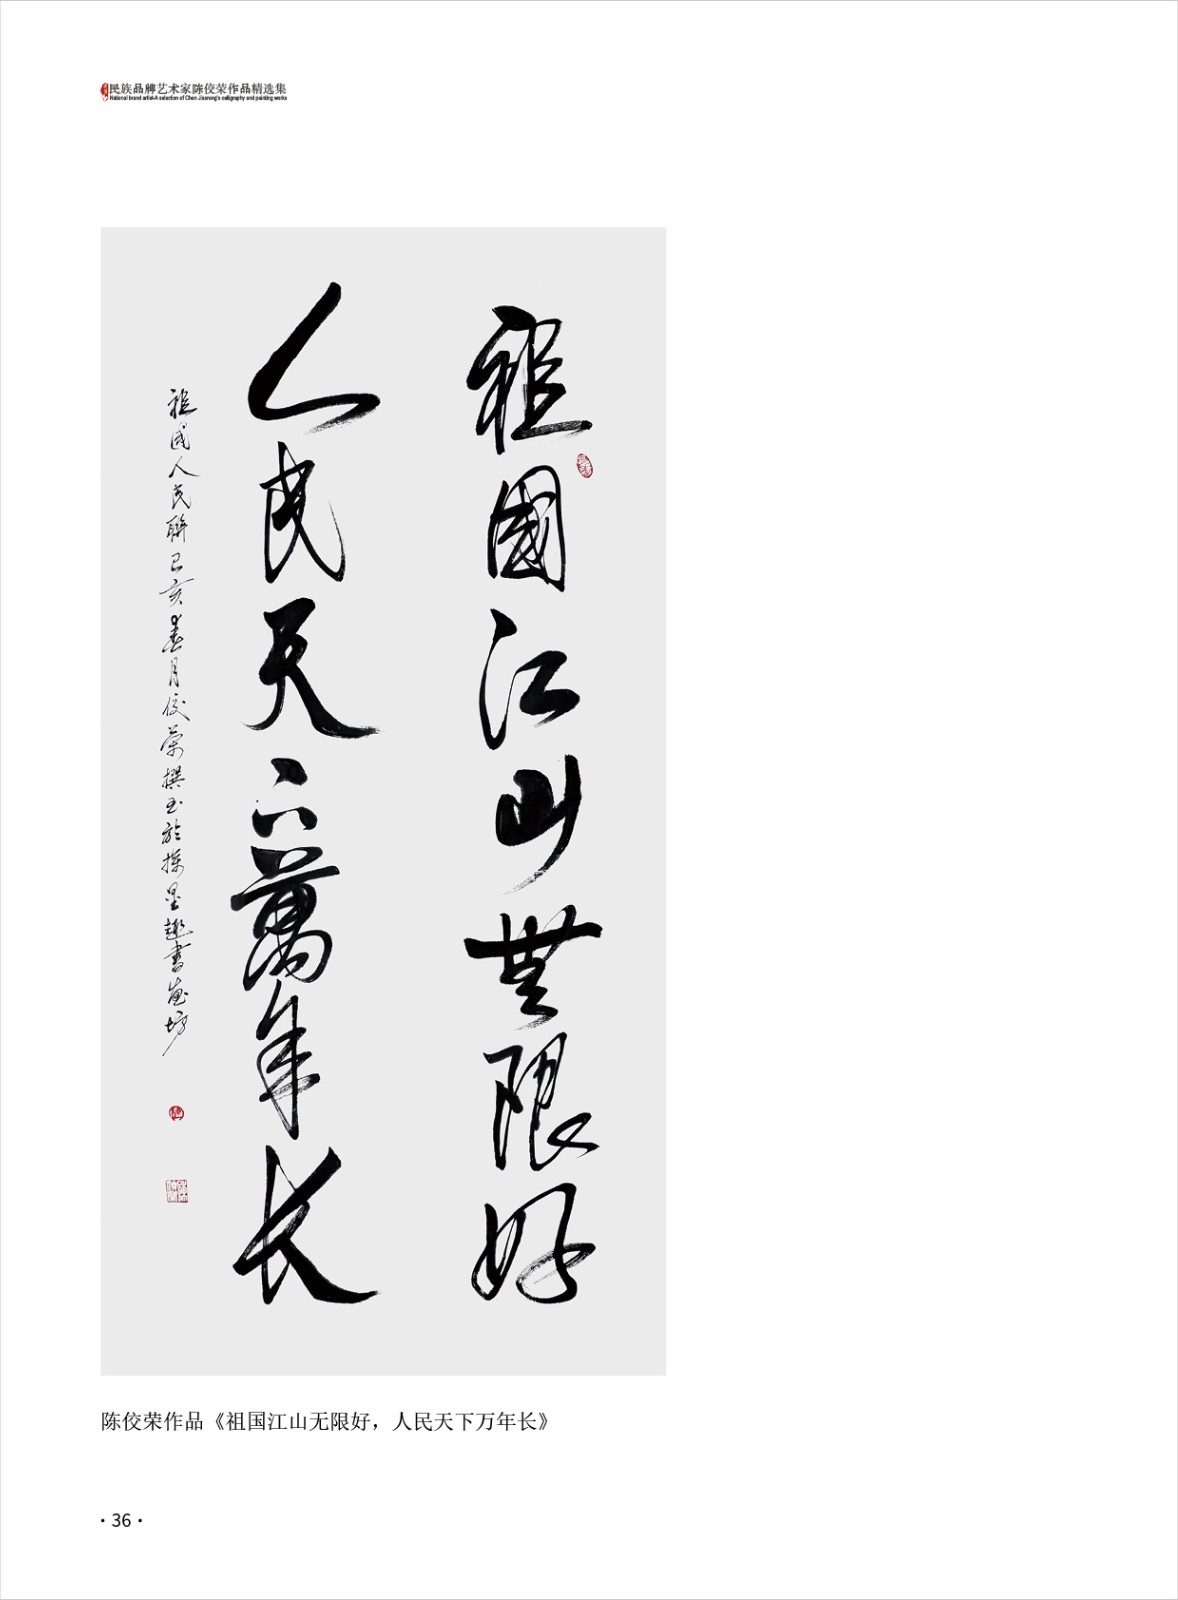 民族品牌艺术家陈佼荣作品精选集
National brand artist-A selection of Chen Jiaorong's caligraphy and painting works
祖國江山無限好
人民天下萬年长
祖國人民聯己亥春月佼荣撰书於探墨趣書畫坊
陈佼荣作品《祖国江山无限好，人民天下万年长》
·36·